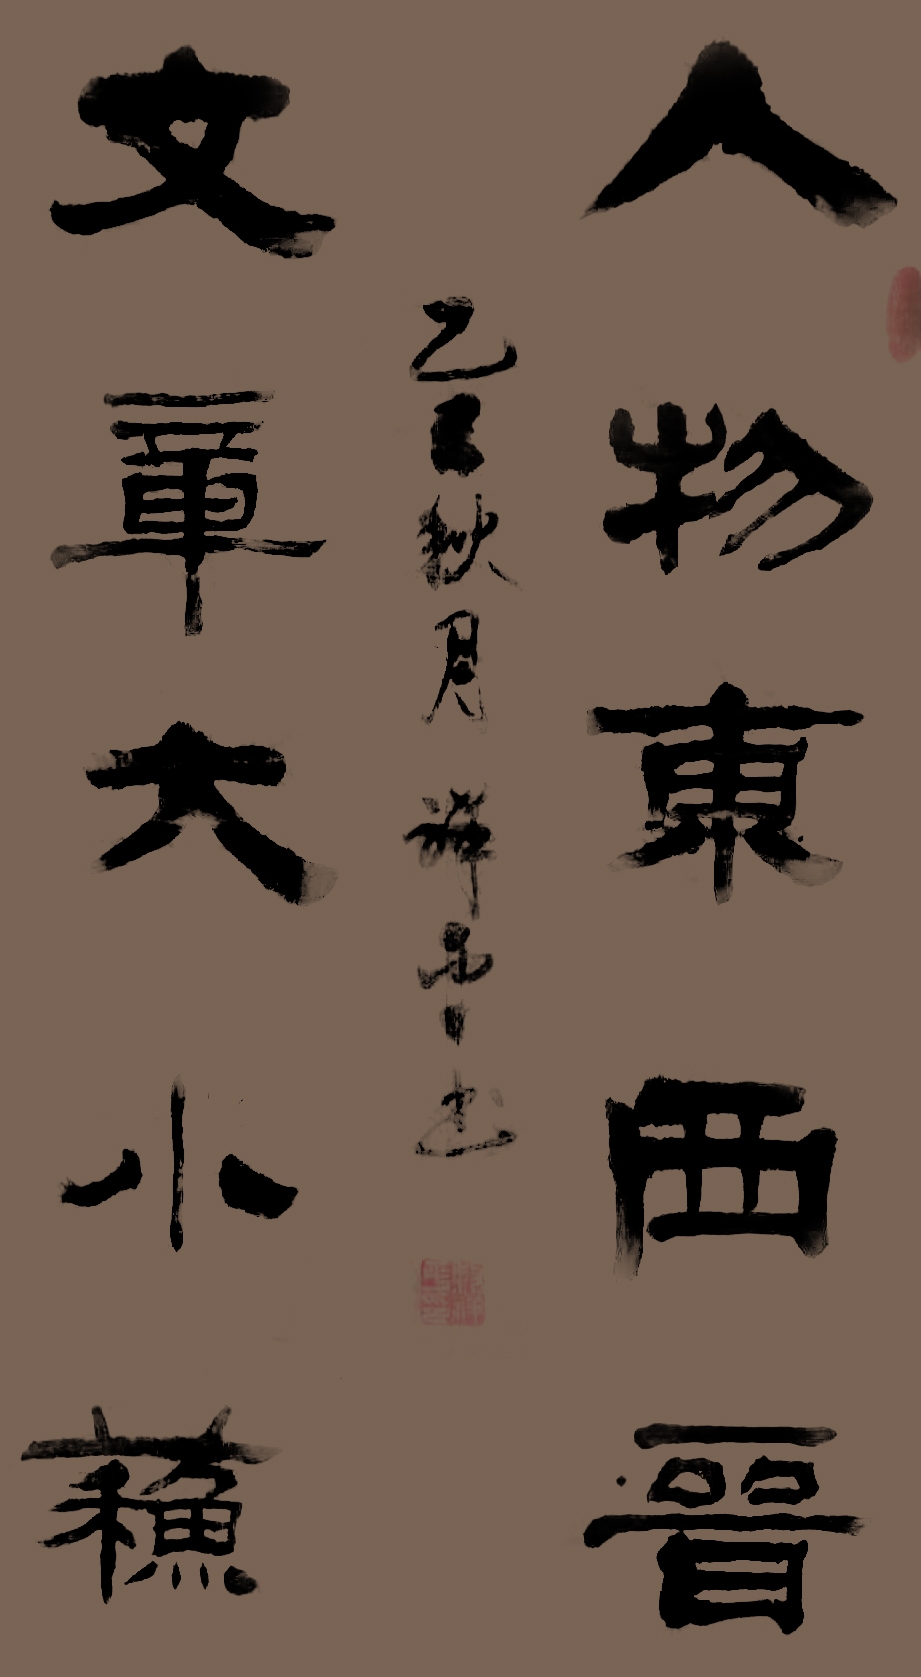 人物東西晉
文章大小蘓
乙巳秋月